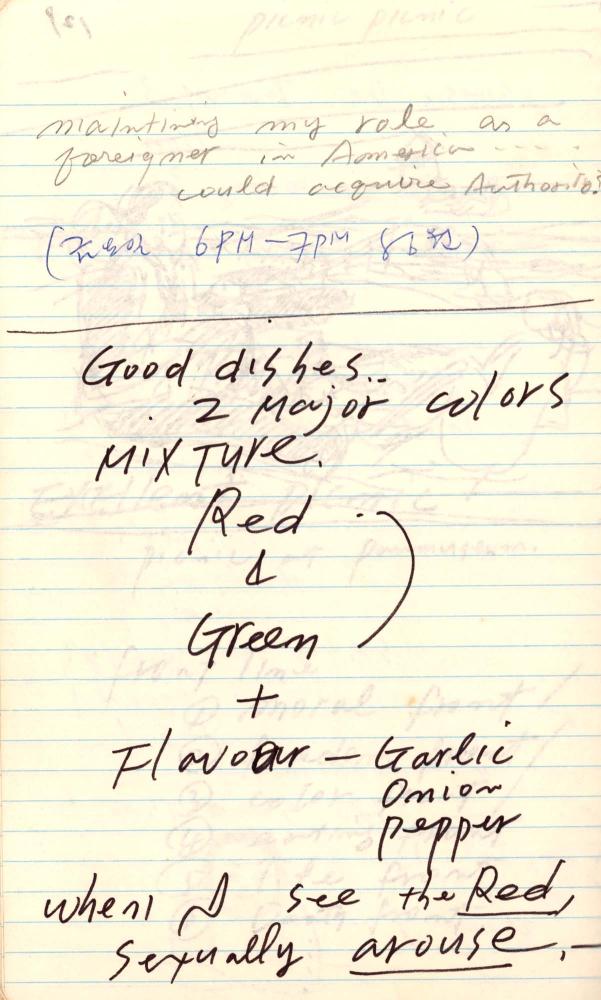 maintining my role as a
foreigner in America ....
could acquire Authority.
( 6PM-7PM 86 )
Good dishes..
. 2 Major colors
MIXTURE.
Red
&
Green
+
Flavour - Garlic
Onion
pepper
when I see the Red,
sexually arouse.-